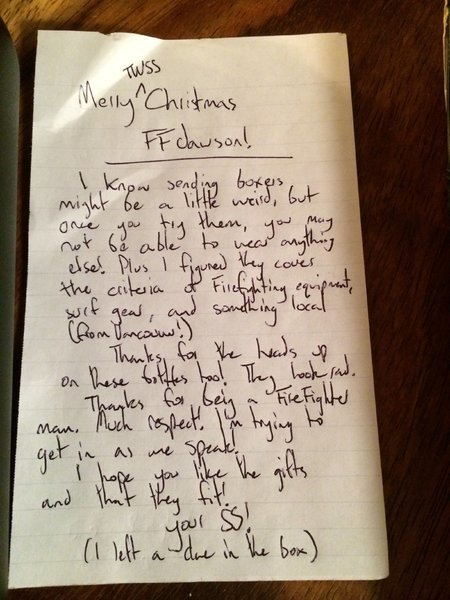 TWSS
Merry ^ Christmas
FF dawson!
I know sending boxers
might be a little weird, but
once you try them, you may
not be able to wear anything
else! Plus I figured they cover
the criteria of Firefighting equipment,
surf gear, and something local
(from Vancouver!)
Thanks for the heads up
on these bottles too! They look rad.
Thanks for being a FireFighter
man. Much respect! I'm trying to
get in as we speak!
I hope you like the gifts
and that they fit!
your SS!
(I left a clue in the box)